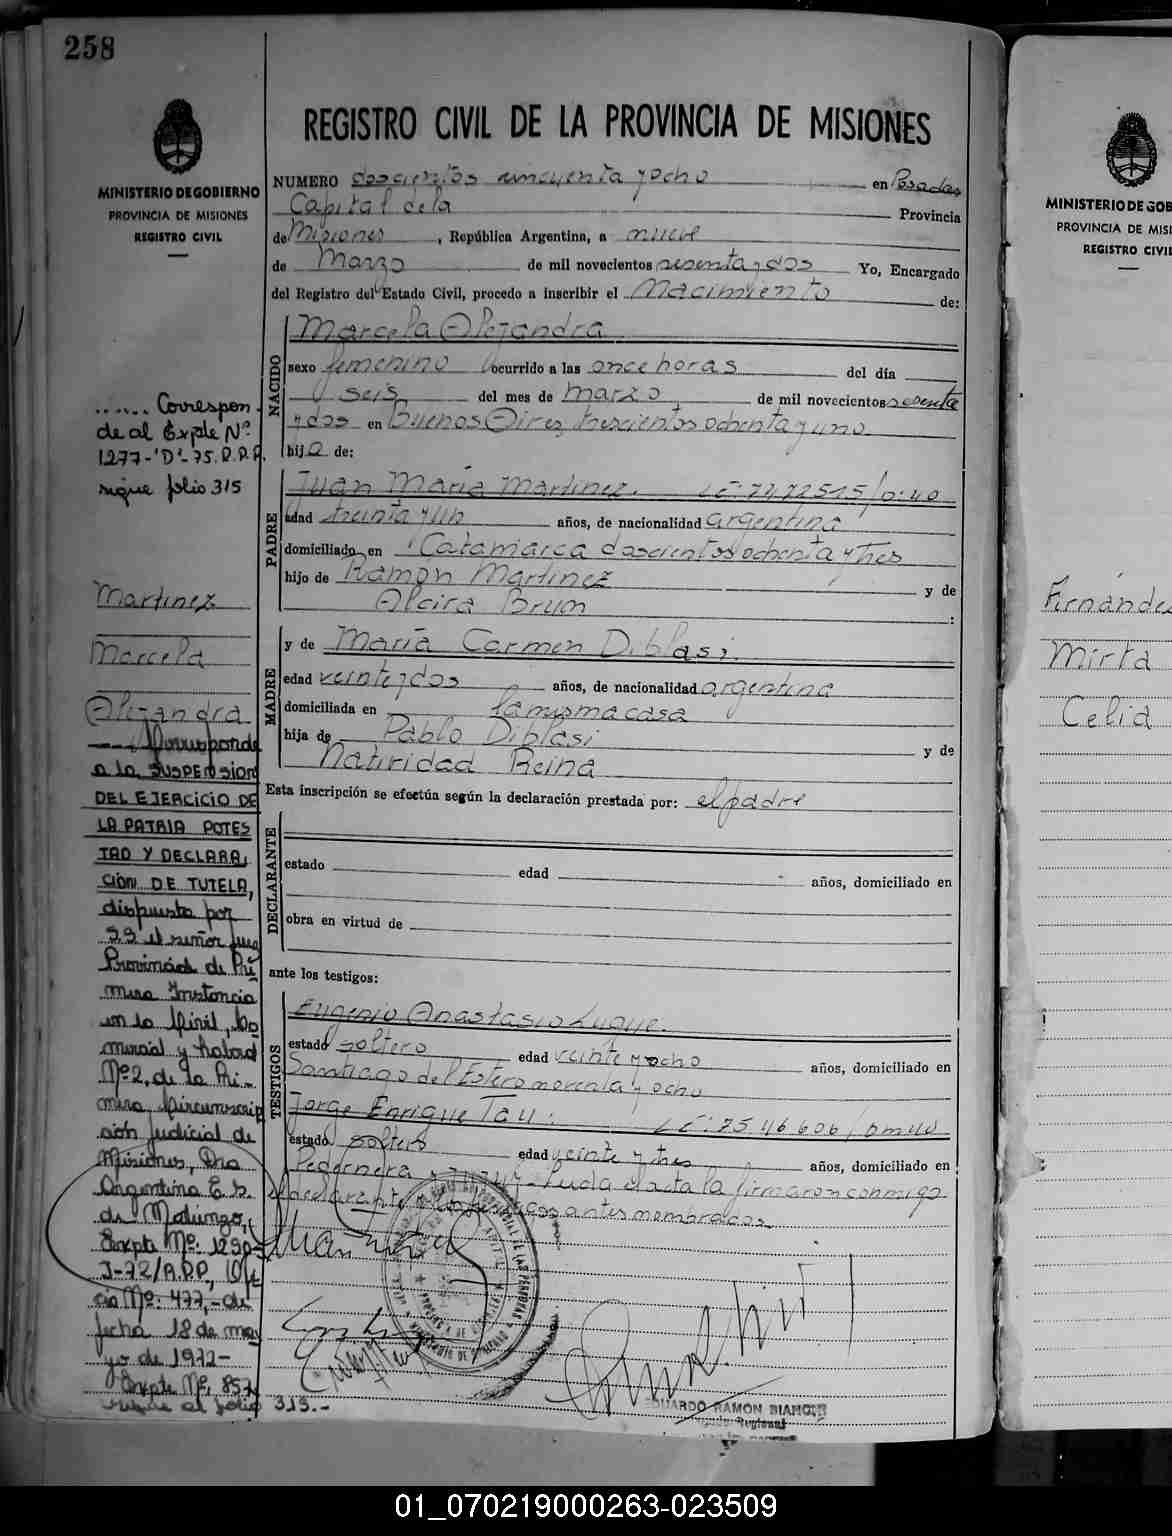 258
MINISTERIO DE GOBIERNO
PROVINCIA DE MISIONES
REGISTRO CIVIL
...... Correspon-
de al Expte Nº
1277-'D'-75. R.P.P.
sigue folio 315
Martinez
Marcela
Alejandra
Corresponde
a la SUSPENSION
DEL EJERCICIO DE
LA PATRIA POTES
TAD Y DECLARA
CIÓN DE TUTELA,
dispuesta por
S.S el señor Juez
Provincial de Pri
mera Instancia
en lo Civil, Co
mercial y Laboral
Nº 2, de la Pri-
mera Circunscrip
ción Judicial de
Misiones, Dra
Argentina E. S.
de
Expte Nº: 1290-
J-72/A.P.P., Ofi
cio Nº: 477,- de
fecha 18 de ma
yo de 1972-
Expte Nº, 857
al folio 315.-
REGISTRO CIVIL DE LA PROVINCIA DE MISIONES
NUMERO doscientos cincuenta y ocho en Posadas
Capital de la Provincia
de Misiones, República Argentina, a nueve
de Marzo de mil novecientos sesenta y dos Yo, Encargado
del Registro del Estado Civil, procedo a inscribir el Nacimiento de:
NACIDO
Marcela Alejandra
sexo femenino ocurrido a las once horas del día
seis del mes de marzo de mil novecientos sesenta
y dos en Buenos Aires trescientos ochenta y uno
hija de:
PADRE
Juan María Martinez.
edad treinta y un años, de nacionalidad argentina
domiciliado en Catamarca doscientos ochenta y tres
hijo de Ramón Martinez y de
Alcira Brum :
MADRE
y de María Carmen Diblasi.
edad veinte y dos años, de nacionalidad argentina
domiciliada en la misma casa
hija de Pablo Diblasi y de
Natividad Reina
Esta inscripción se efectúa según la declaración prestada por: el padre
DECLARANTE
estado edad años, domiciliado en
obra en virtud de
ante los testigos:
TESTIGOS
Eugenio Anastasio Luque.
estado soltero edad veinte y ocho años, domiciliado en
Santiago del Estero noventa y ocho
Jorge Enrique Tau.
estado soltero edad veinte y tres años, domiciliado en
Pedernera Leida el acta la firmaron conmigo
el declarante y los testigos antes nombrados
EDUARDO RAMON BIANCHI
MINISTERIO DE GOB
PROVINCIA DE MISI
REGISTRO CIVIL
Fernández
Mirta
Celia
01_070219000263-023509